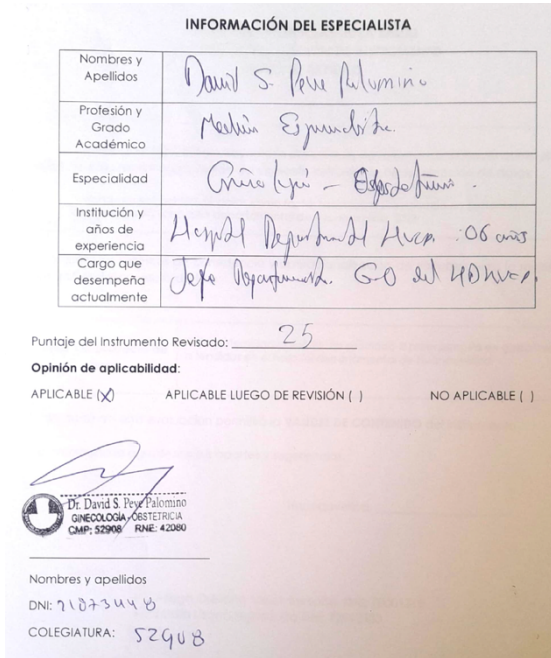 INFORMACIÓN DEL ESPECIALISTA
Nombres y Apellidos David S. Peve Palomino
Profesión y Grado Académico Médico Especialista.
Especialidad
Institución y años de experiencia Hospital Departamental Hvca. : 06 años
Cargo que desempeña actualmente Jefe Departamento. G-O del HDHVCA.
Puntaje del Instrumento Revisado: 25
Opinión de aplicabilidad:
APLICABLE (X) APLICABLE LUEGO DE REVISIÓN ( ) NO APLICABLE ( )
Dr. David S. Peve Palomino
GINECOLOGÍA-OBSTETRICIA
CMP: 52908 RNE: 42080
Nombres y apellidos
DNI:
COLEGIATURA: 52908